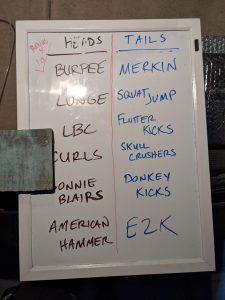 HEADS
BURPEE
LUNGE
LBC
CURLS
ONNIE
BLAIRS
AMERICAN
HAMMER
TAILS
MERKIN
SQUAT JUMP
FLUTTER
KICKS
SKULL
CRUSHERS
DONKEY
KICKS
E2K